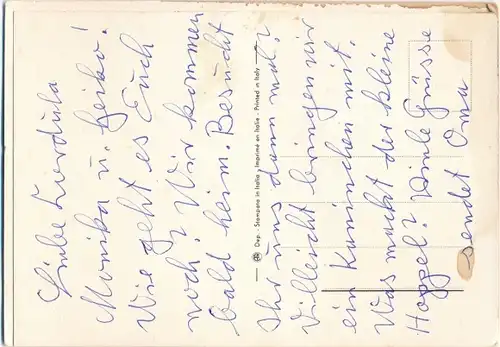 Liebe Kordula
Monika u. Heiko!
Wie geht es Euch
noch? Wir kommen
bald heim. Besucht
Ihr uns dann mal?
Villeicht bringen wir
ein Kaninchen mit.
Was macht der kleine
Hoppel? Viele Grüsse
sendet Oma
Dep. - Stampato in Italia - Imprimé en Italie - Printed in Italy